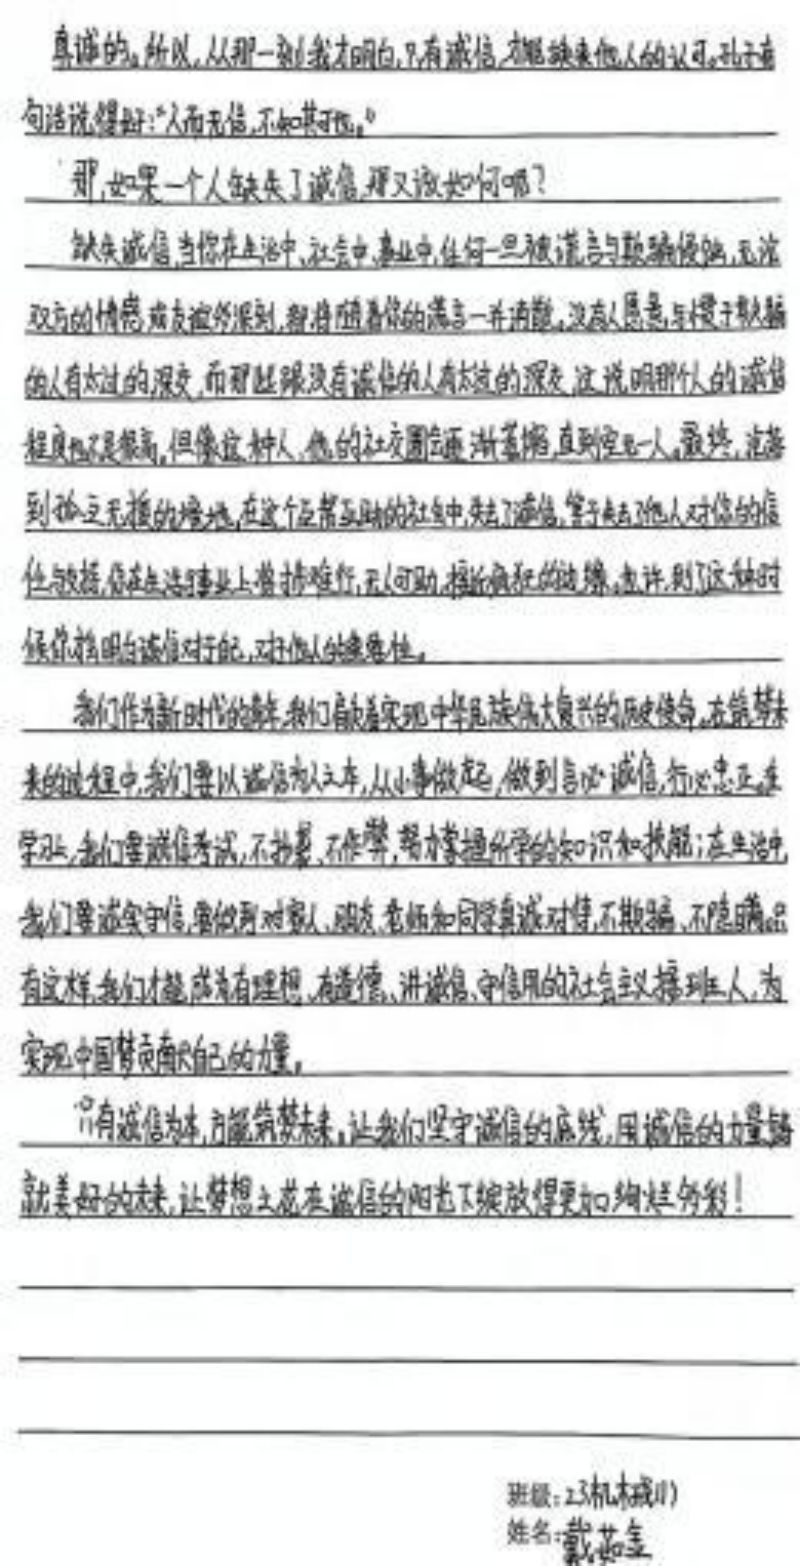 真诚的。所以，从那一刻我才明白，只有诚信，才能换来他人的认可。孔子有
句话说得好：“人而无信，不知其可也。”
那，如果一个人缺失了诚信，那又该如何呢？
缺失诚信，当你在生活中、社会中、事业中，任何一旦被谎言与欺骗侵蚀，无论
双方的情感或友谊多深刻，都将随着你的谎言一并消散。没有人愿意与惯于欺骗
的人有太过的深交，而那些跟没有诚信的人有太过的深交，这说明那个人的诚信
程度也不是很高，但像这种人，他的社交圈会逐渐萎缩，直到空无一人。最终，沦落
到孤立无援的境地，在这个互帮互助的社会中，失去了诚信，等于失去了他人对你的信
任与支持，你在生活与事业上将步难行，无人可助，的边缘。也许，到了这种时
候你才明白诚信对于自己，对于他人的重要性。
我们作为新时代的青年，我们肩负着实现中华民族伟大复兴的历史使命。在筑梦未
来的过程中，我们要以诚信为人之本，从小事做起，做到言必诚信，行必忠正。在
学习上，我们要诚信考试，不抄袭、不作弊，努力掌握所学的知识和技能；在生活中，
我们要诚实守信，要做到对家人、朋友、老师和同学真诚对待，不欺骗、不隐瞒。只
有这样，我们才能成为有理想、有道德、讲诚信、守信用的社会主义接班人，为
实现中国梦贡献自己的力量。
只有诚信为本，方能筑梦未来。让我们坚守诚信的底线，用诚信的力量铸
就美好的未来，让梦想之花在诚信的阳光下绽放得更加绚烂多彩！
班级：23机械(1)
姓名：戴茹